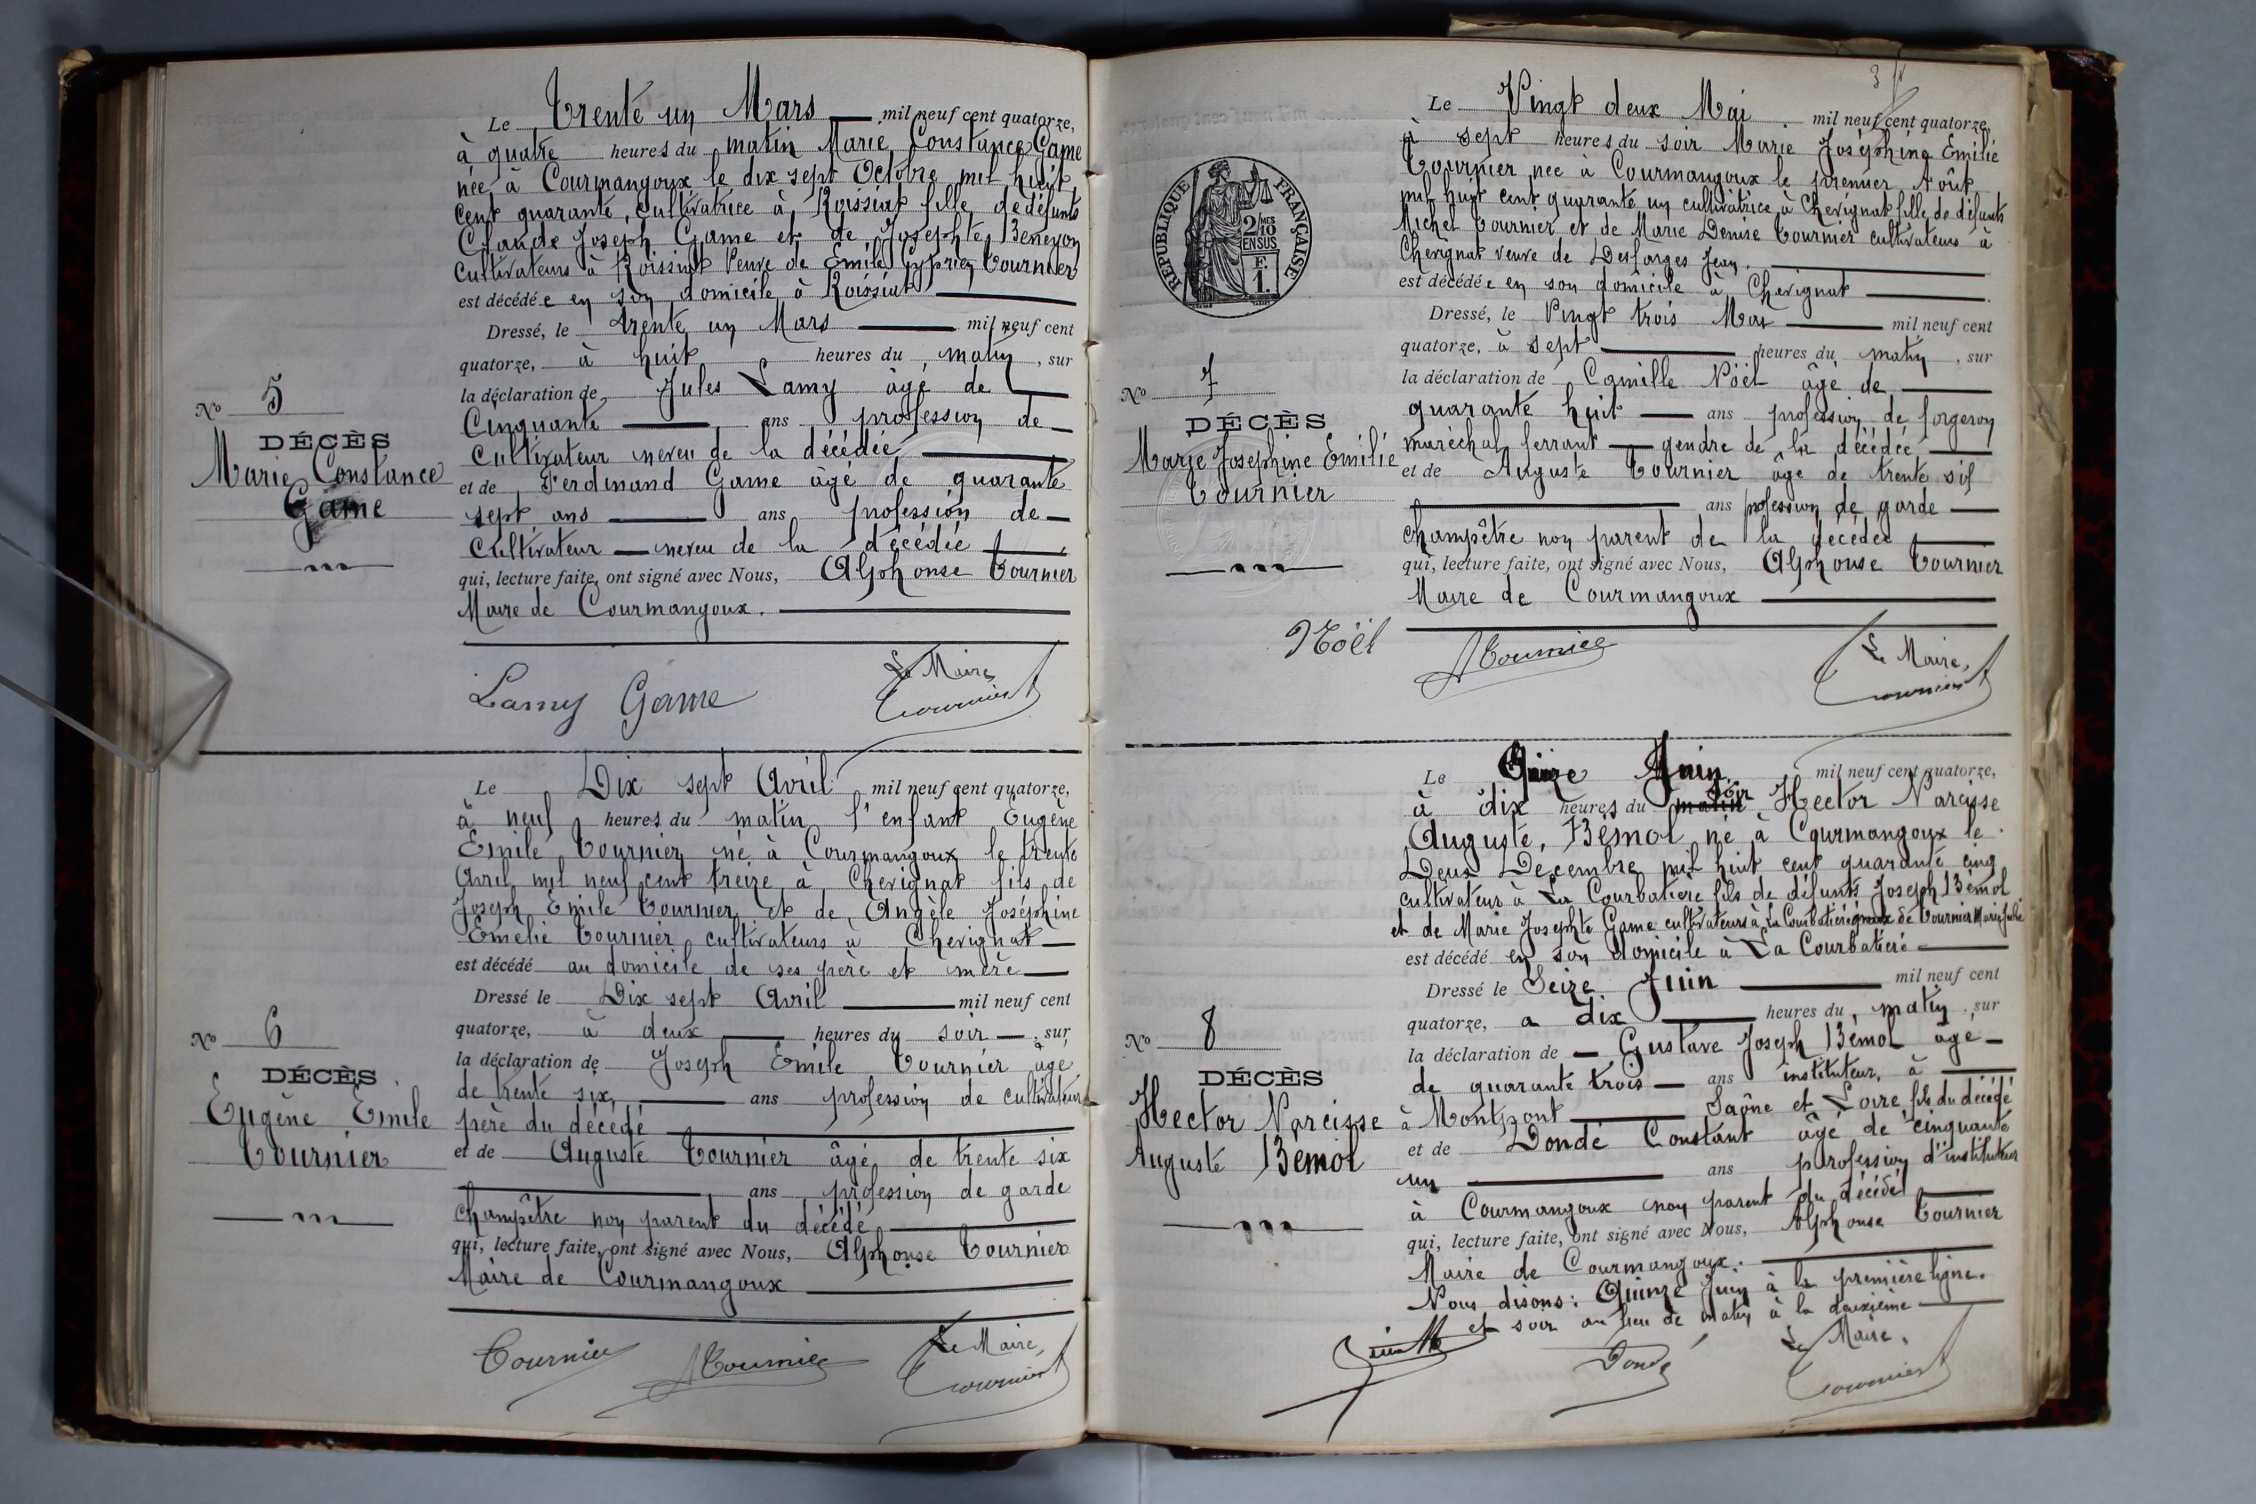 Le Trente un Mars mil neuf cent quatorze,
à quatre heures du matin Marie Constance Game
née à Courmangoux le dix sept Octobre mil huit
cent quarante, cultivatrice à Roissiat fille de défunts
Claude Joseph Game et de Josephte Beneyon
cultivateurs à Roissiat Veuve de Emile Cyprien Tournier
est décédée en son domicile à Roissiat
Dressé, le trente un Mars mil neuf cent
quatorze, à huit heures du matin, sur
la déclaration de Jules Lamy âgé de
Cinquante ans profession de
Cultivateur neveu de la décédée
et de Ferdinand Game âgé de quarante
sept ans ans profession de
Cultivateur neveu de la décédée
qui, lecture faite, ont signé avec Nous, Alphonse Tournier
Maire de Courmangoux.
No 5
DÉCÈS
Marie Constance
Game
Lamy Game Le Maire,
Tournier
Le Dix sept Avril mil neuf cent quatorze,
à neuf heures du matin l'enfant Eugène
Emile Tournier né à Courmangoux le trente
Avril mil neuf cent treize à Chevignat fils de
Joseph Emile Tournier et de Angèle Joséphine
Emelie Tournier cultivateurs à Chevignat
est décédé au domicile de ses père et mère
Dressé le Dix sept Avril mil neuf cent
quatorze, à deux heures du soir, sur
la déclaration de Joseph Emile Tournier âgé
de trente six ans profession de cultivateur
père du décédé
et de Auguste Tournier âgé de trente six
ans profession de garde
champêtre non parent du décédé
qui, lecture faite, ont signé avec Nous, Alphonse Tournier
Maire de Courmangoux
No 6
DÉCÈS
Eugène Emile
Tournier
Tournier ATournier Le Maire,
Tournier
Le Vingt deux Mai mil neuf cent quatorze,
à sept heures du soir Marie Joséphine Emilie
Tournier née à Courmangoux le premier Août
mil huit cent quarante un cultivatrice à Chevignat fille de défunts
Michel Tournier et de Marie Denise Tournier cultivateurs à
Chevignat veuve de Desforges Jean.
est décédée en son domicile à Chevignat
Dressé, le Vingt trois Mai mil neuf cent
quatorze, à sept heures du matin, sur
la déclaration de Camille Noël âgé de
quarante huit ans profession de forgeron
maréchal ferrant gendre de la décédée
et de Auguste Tournier âgé de trente six
ans profession de garde
champêtre non parent de la décédée
qui, lecture faite, ont signé avec Nous, Alphonse Tournier
Maire de Courmangoux
REPUBLIQUE FRANÇAISE
2/10 MES
EN SUS
F.
1.
No 7
DÉCÈS
Marie Josephine Emilie
Tournier
Noël ATournier Le Maire,
Tournier
Le Quinze Juin mil neuf cent quatorze,
à dix heures du matin soir Hector Narcisse
Auguste, Bémol né à Courmangoux le
Deux Decembre mil huit cent quarante cinq
cultivateur à La Courbatière fils de défunts Joseph Bémol
et de Marie Josephte Game cultivateurs à La Courbatière époux de Tournier Marie Julie
est décédé en son domicile à La Courbatière
Dressé le Seize Juin mil neuf cent
quatorze, a dix heures du matin, sur
la déclaration de Gustave Joseph Bémol âgé
de quarante trois ans instituteur, à
à Montpont Saône et Loire fils du décédé
et de Dondé Constant âgé de cinquante
un ans profession d'instituteur
à Courmangoux non parent du décédé
qui, lecture faite, ont signé avec Nous, Alphonse Tournier
Maire de Courmangoux.
Nous disons: Quinze Juin à la première ligne.
et soir au lieu de matin à la deuxième
No 8
DÉCÈS
Hector Narcisse
Auguste Bemol
Dondé Le Maire,
Tournier